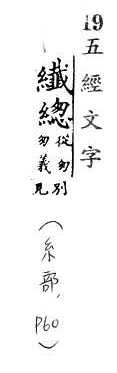 19
五經文字
纖緫
從匆別
匆義見
（糸部，P60）